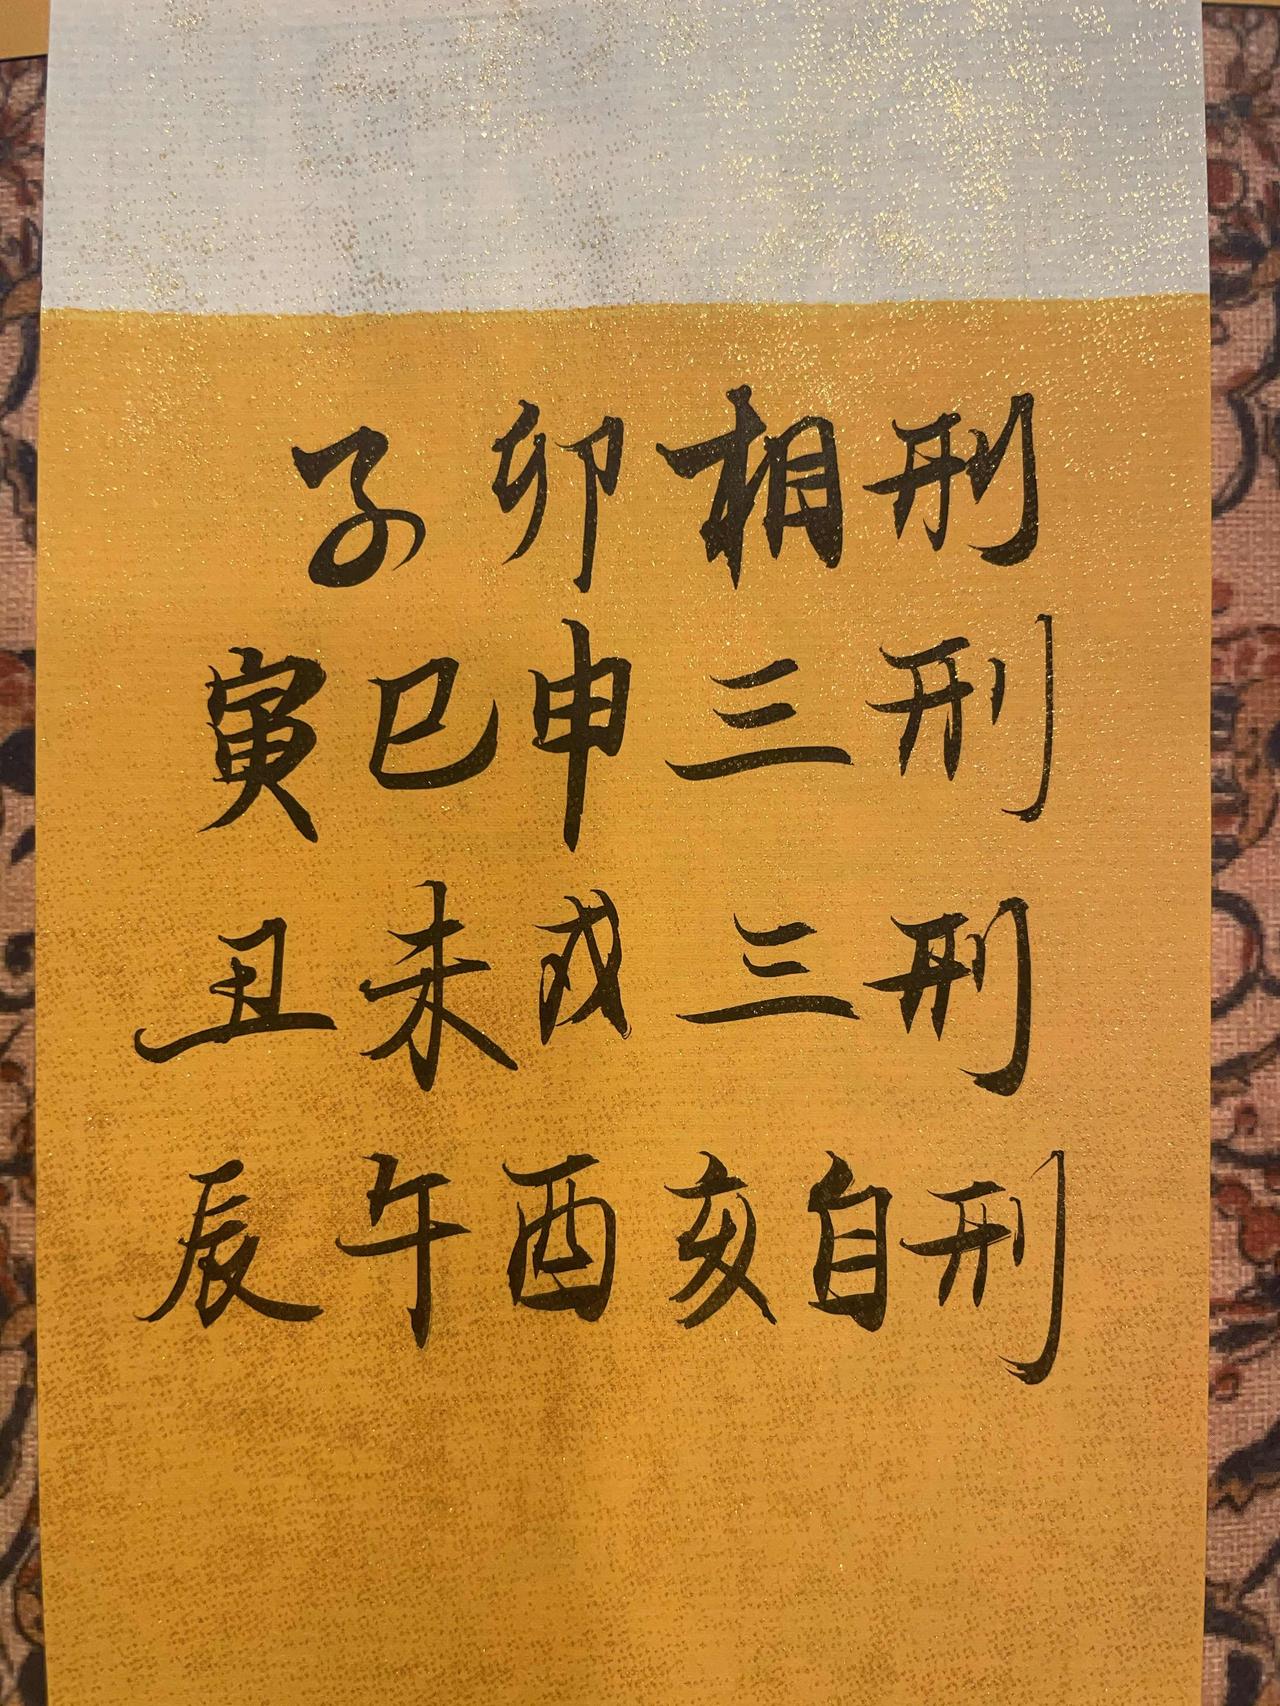 子卯相刑
寅巳申三刑
丑未戌三刑
辰午酉亥自刑